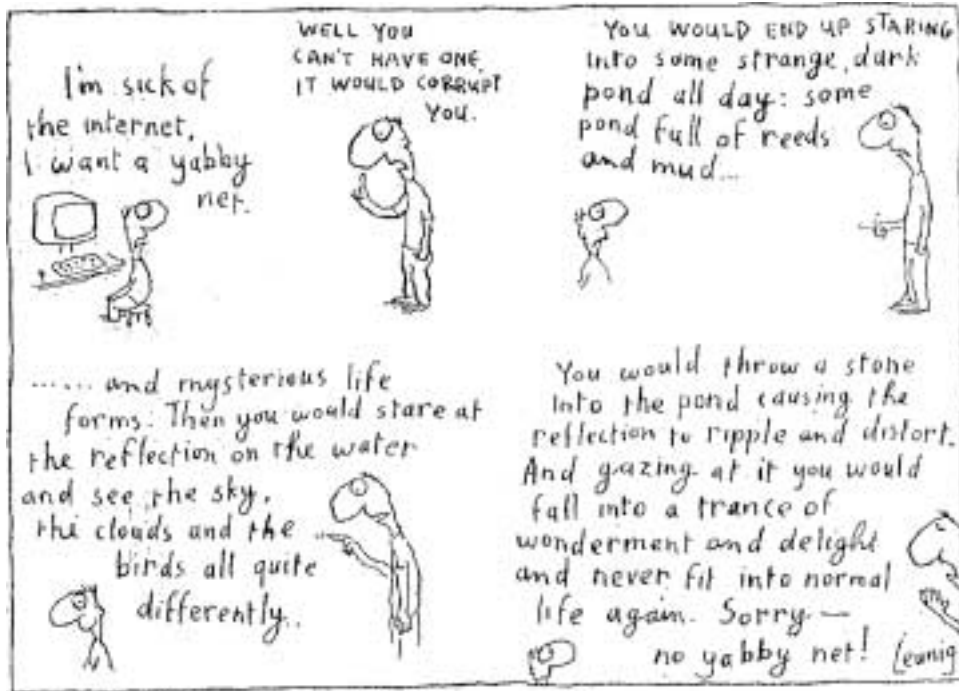 I'm sick of
the internet,
I want a yabby
net.
WELL YOU
CAN'T HAVE ONE.
IT WOULD CORRUPT
YOU.
YOU WOULD END UP STARING
into some strange, dark
pond all day: some
pond full of reeds
and mud...
...... and mysterious life
forms. Then you would stare at
the reflection on the water
and see the sky,
the clouds and the
birds all quite
differently..
You would throw a stone
into the pond causing the
reflection to ripple and distort.
And gazing at it you would
fall into a trance of
wonderment and delight
and never fit into normal
life again. Sorry —
no yabby net!
Leunig